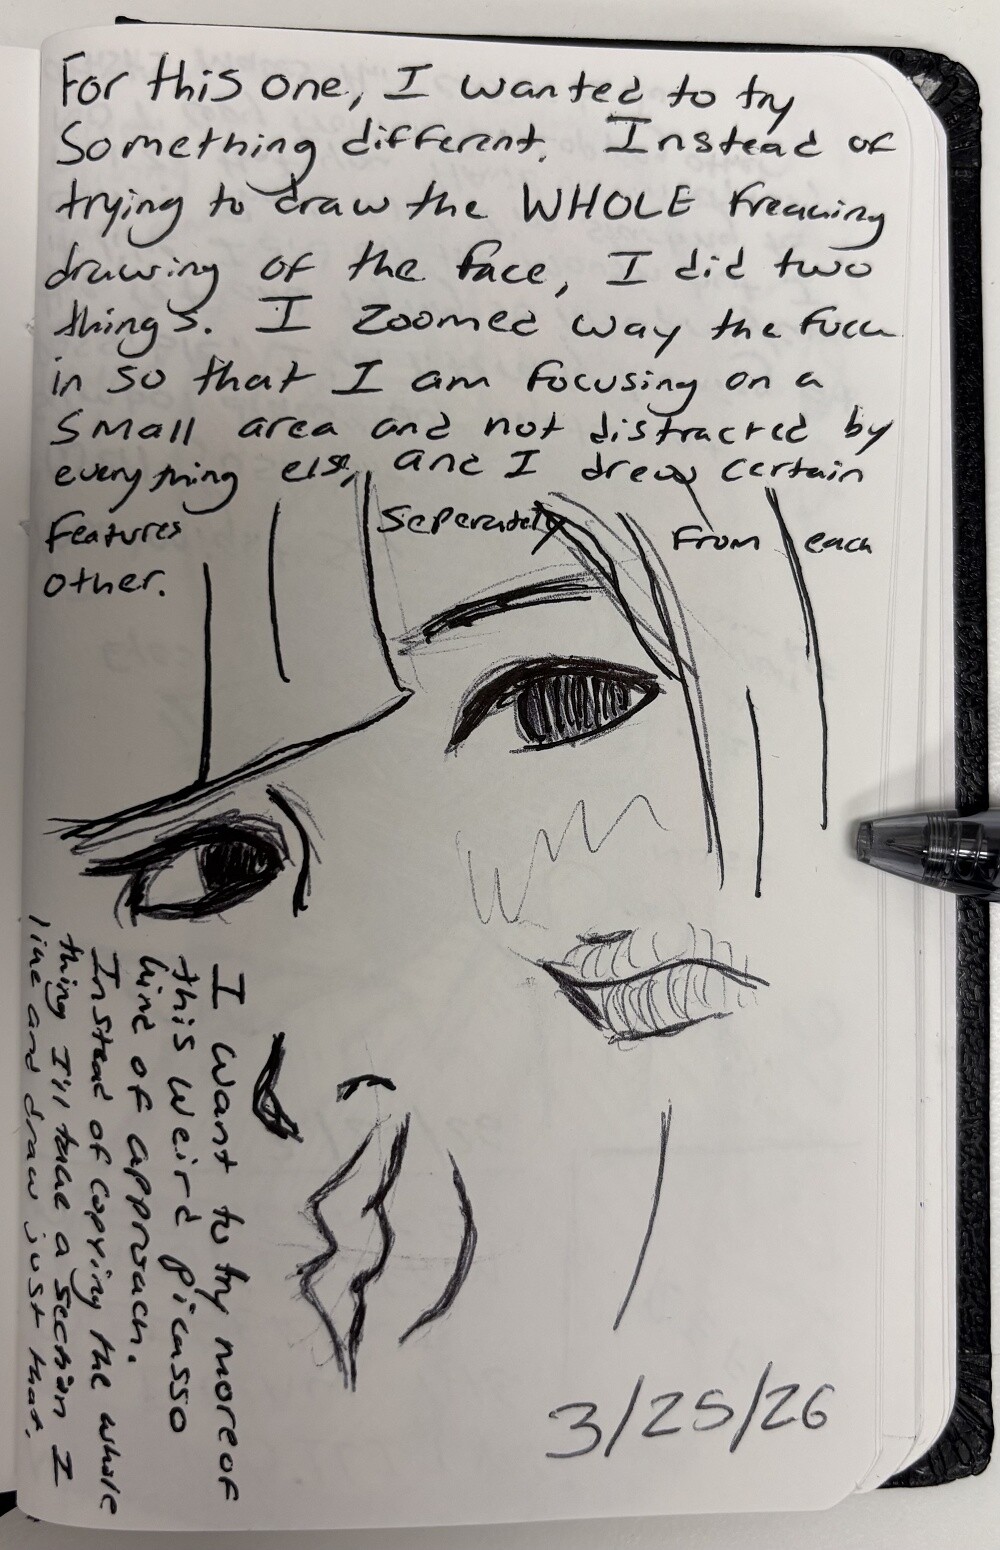 For this one, I wanted to try
Something different. Instead of
trying to draw the WHOLE freaking
drawing of the face, I did two
things. I zoomed way the fuck
in so that I am focusing on a
small area and not distracted by
everything else, and I drew certain
features seperately from each
other.
I want to try more of
this weird picasso
kind of approach.
Instead of copying the whole
thing I'll take a section I
like and draw just that.
3/25/26